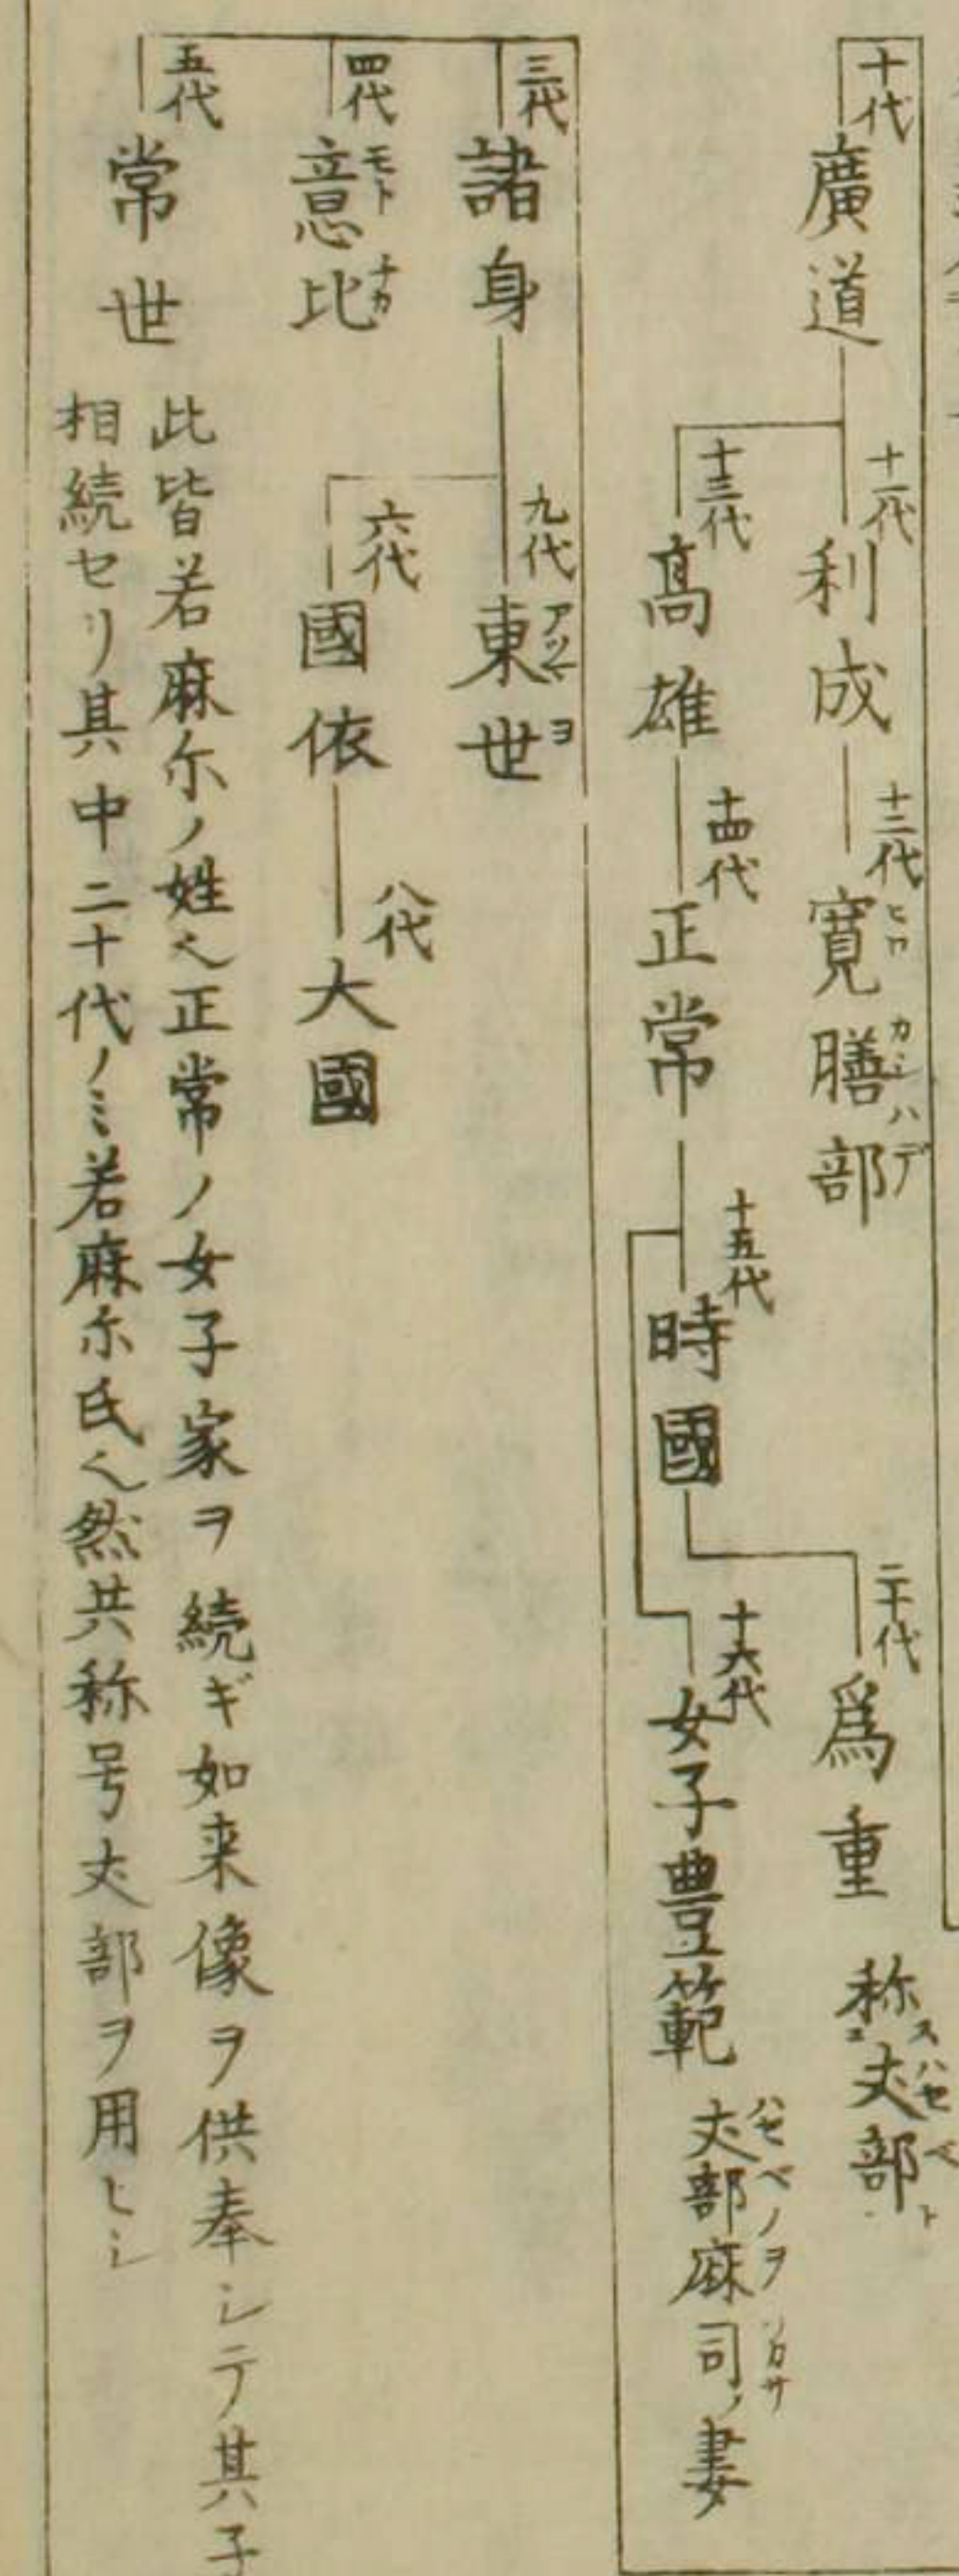 十代 廣道
十一代 利成
十二代 寛膳部 ヒロ カシハデ
十三代 高雄
十四代 正常
十五代 時國
二十代 爲重 称ス丈部ト ハセベ
十六代 女子豊範 丈部麻司ノ妻 ハセベノヲツカサ
三代 諸身
九代 東世 アツマヨ
四代 意比 モトナカ
六代 國依
八代 大國
五代 常世
此皆若麻尓ノ姓也正常ノ女子家ヲ続ギ如来像ヲ供奉シテ其子
相続セリ其中二十代ノミ若麻尓氏也然共称号丈部ヲ用ヒシ